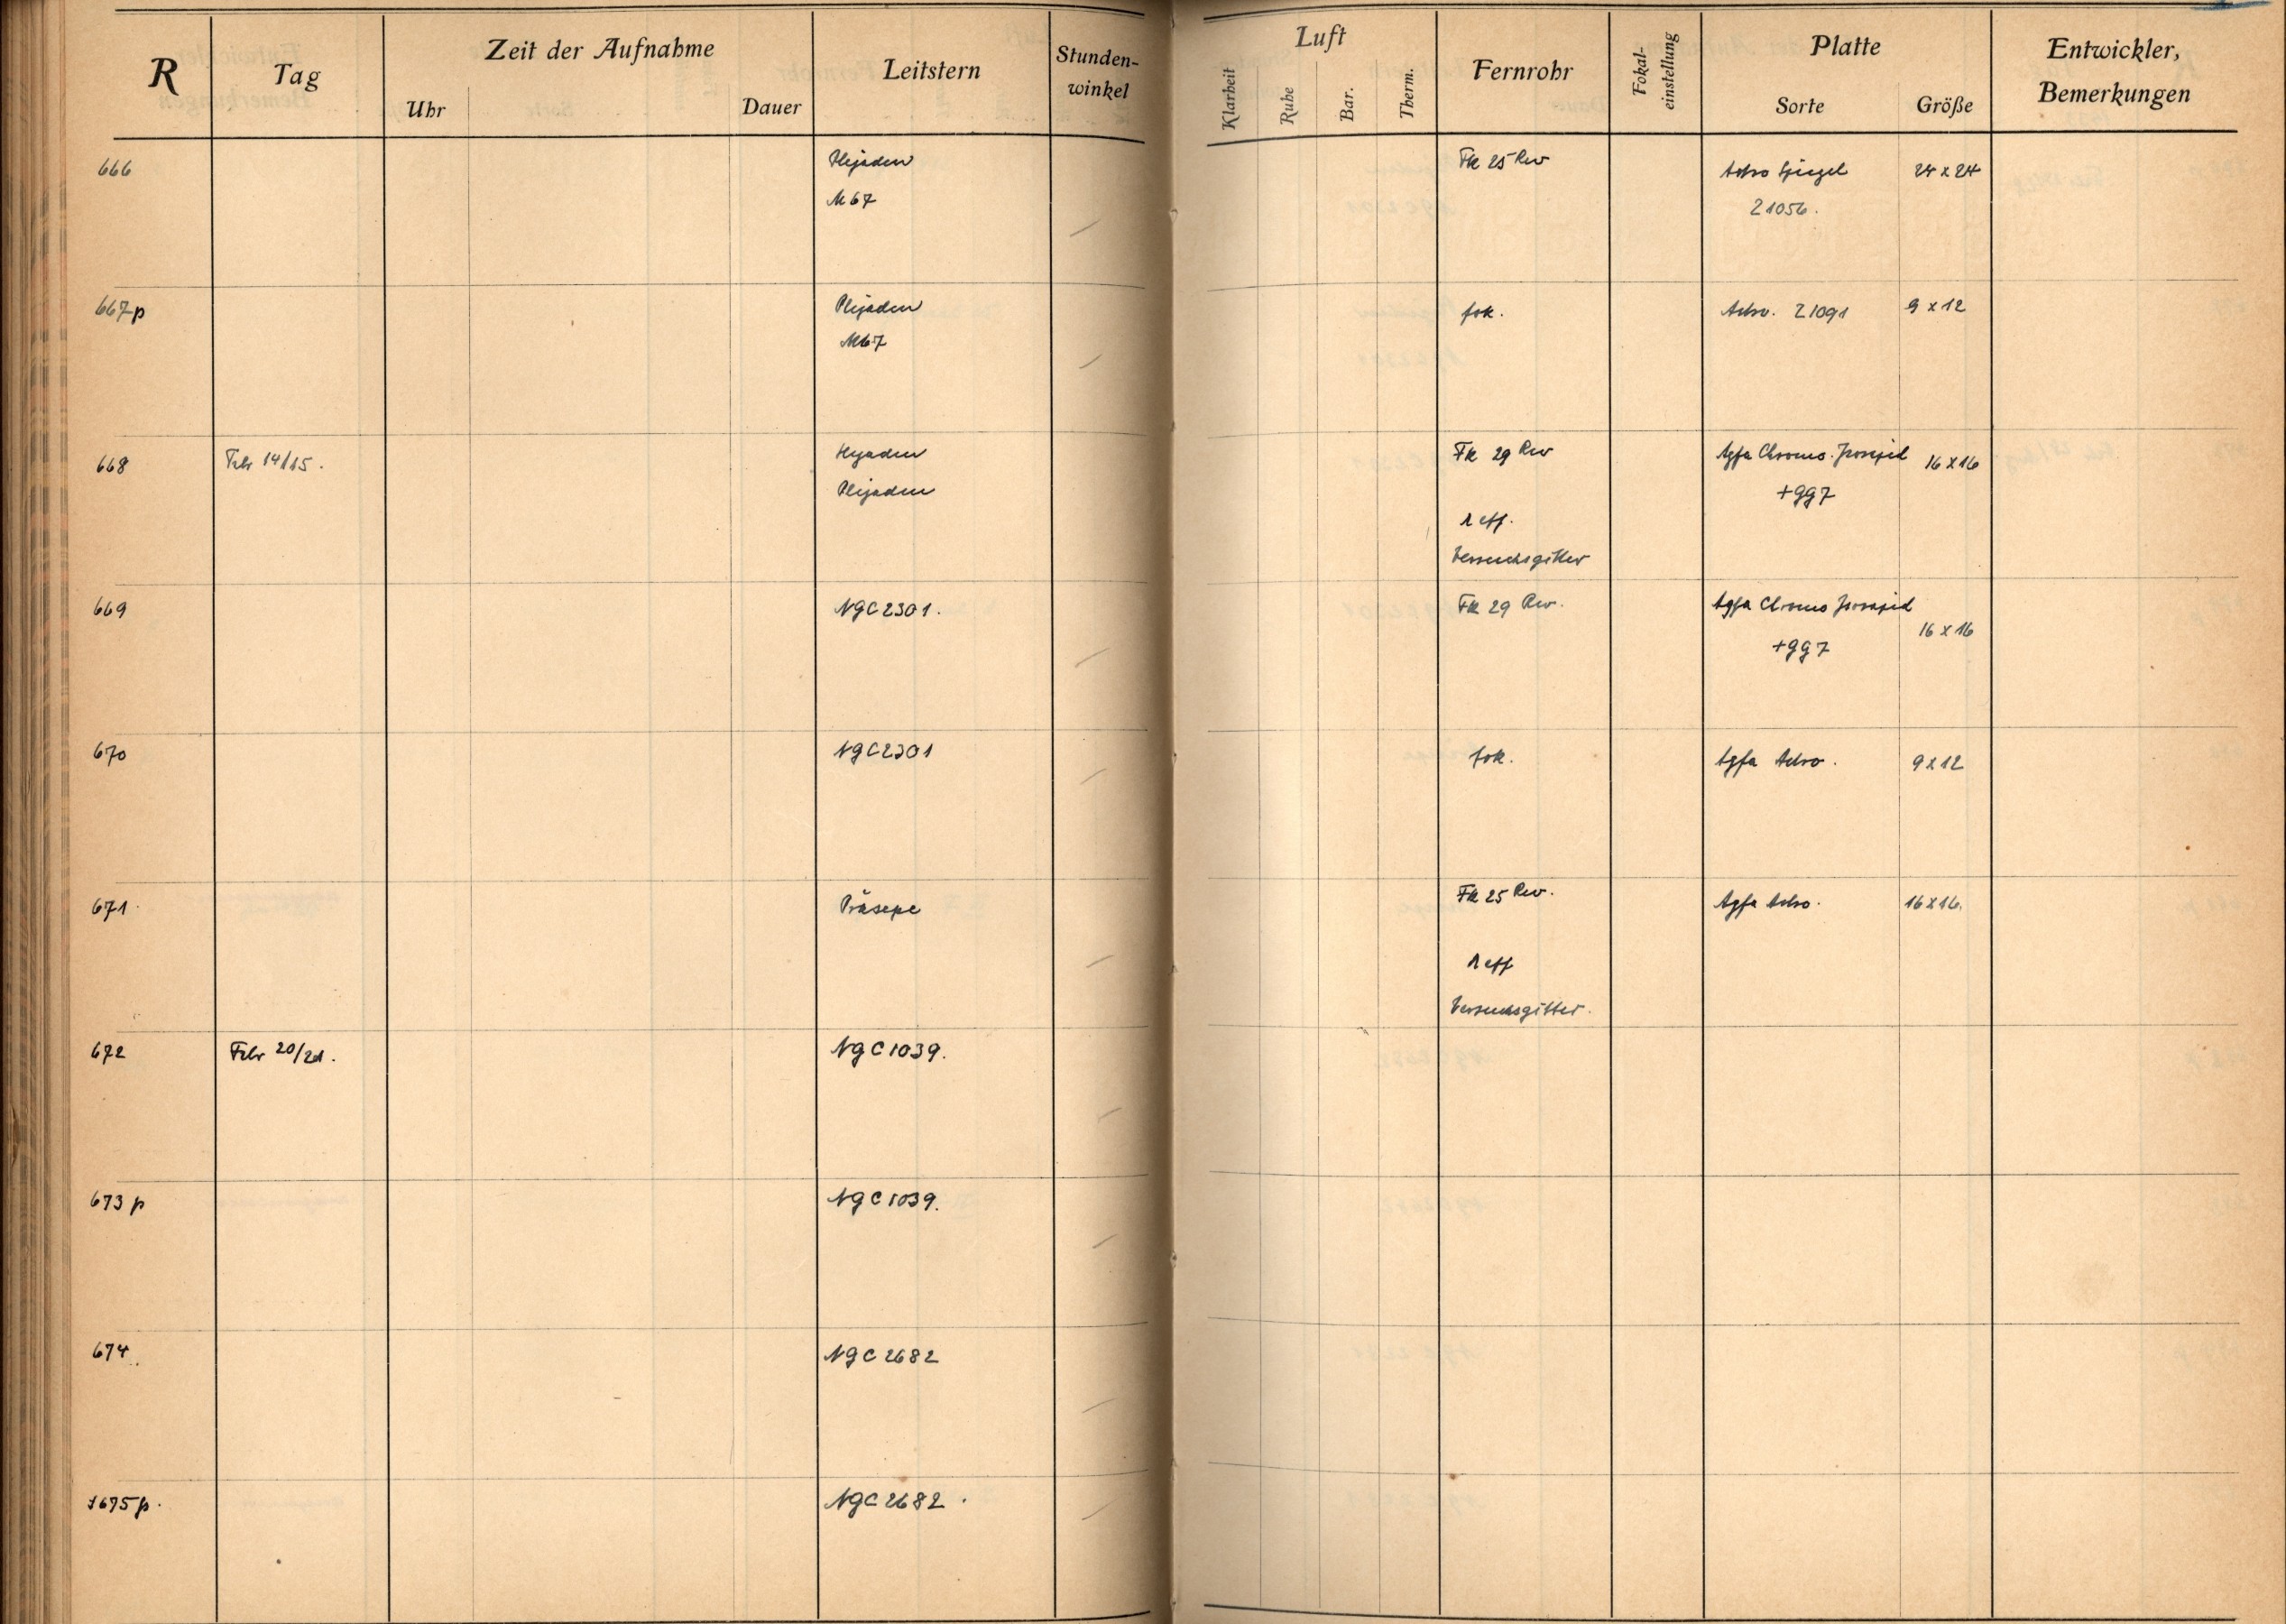 R Tag Zeit der Aufnahme Leitstern Stunden-winkel Luft Fernrohr Fokal-einstellung Platte Entwickler, Bemerkungen
Uhr Dauer Klarheit Ruhe Bar. Therm. Sorte Größe
666 Plejaden Fk 25 Rev Astro Spiegel 24 x 24
M 67 21056.
667p Plejaden fok. Astro. 21091 9 x 12
M67
668 Febr 14/15. Hyaden Fk 29 Rev Agfa Chromo. Isorapid 16 x 16
Plejaden +gg7
1 eff.
Versuchsgitter
669 NGC 2301. Fk 29 Rev. Agfa Chromo Isorapid 16 x 16
+gg7
670 NGC 2301 fok. Agfa Astro. 9 x 12
671 Präsepe Fk 25 Rev. Agfa Astro. 16 x 16.
1 eff
Versuchsgitter.
672 Febr 20/21. NGC 1039.
673 p NGC 1039.
674. NGC 2682
1675 p. NGC 2682.